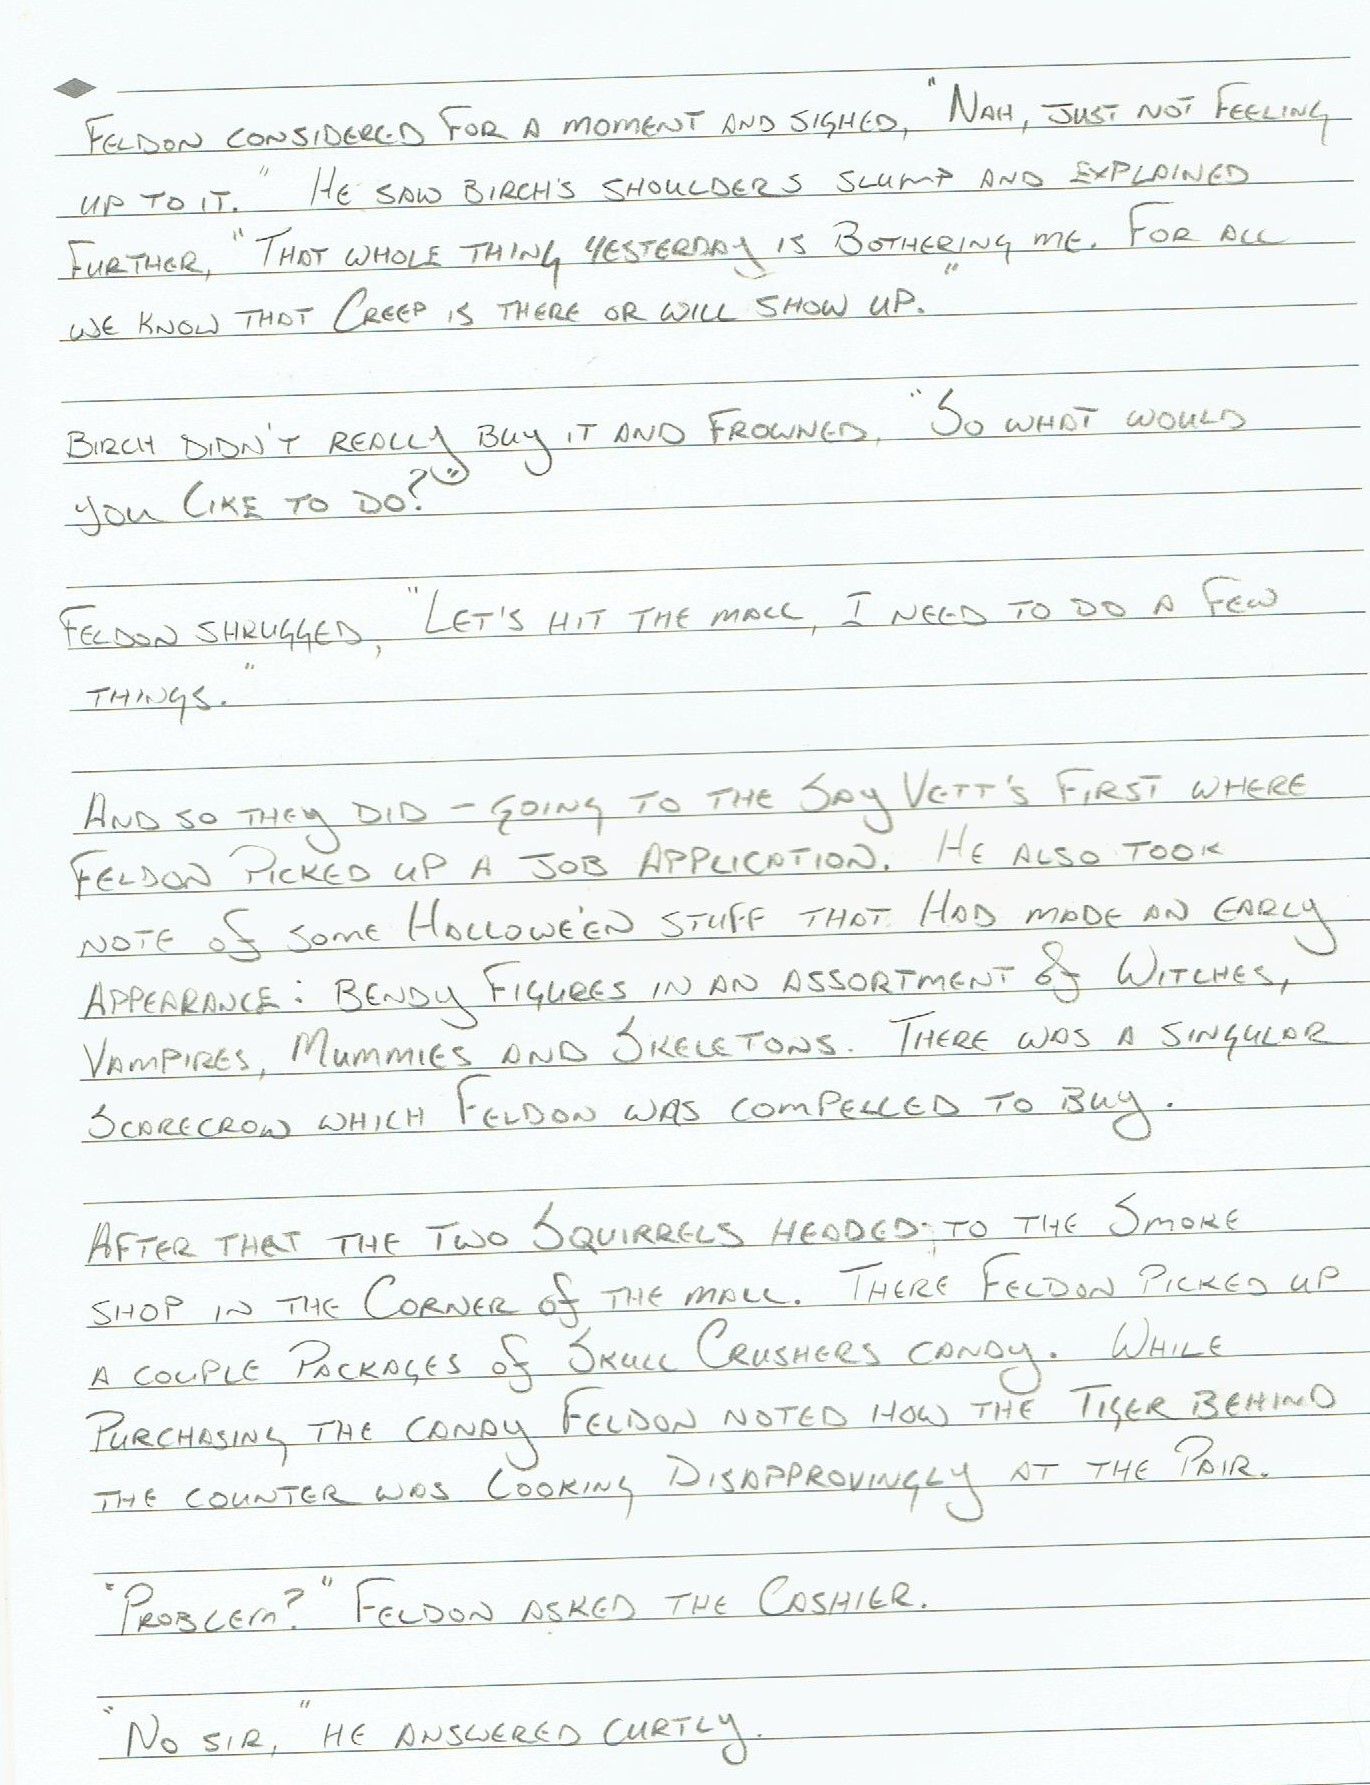 Feldon considered for a moment and sighed, "Nah, just not feeling
up to it." He saw Birch's shoulders slump and explained
further, "That whole thing yesterday is bothering me. For all
we know that creep is there or will show up."
Birch didn't really buy it and frowned, "So what would
you like to do?"
Feldon shrugged, "Let's hit the mall, I need to do a few
things."
And so they did - going to the Say Vett's first where
Feldon picked up a job application. He also took
note of some Hallowe'en stuff that had made an early
appearance: bendy figures in an assortment of Witches,
Vampires, Mummies and Skeletons. There was a singular
Scarecrow which Feldon was compelled to buy.
After that the two Squirrels headed to the Smoke
shop in the corner of the mall. There Feldon picked up
a couple packages of Skull Crushers candy. While
purchasing the candy Feldon noted how the Tiger behind
the counter was looking disapprovingly at the pair.
"Problem?" Feldon asked the cashier.
"No sir," he answered curtly.